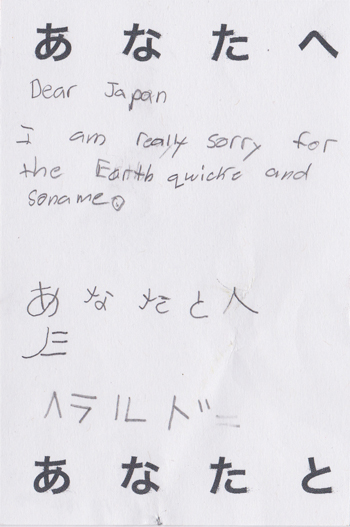 あなたへ
Dear Japan
I am really sorry for
the Earth quicke and
soname.
あなたと人
ヘラルド
あなたと